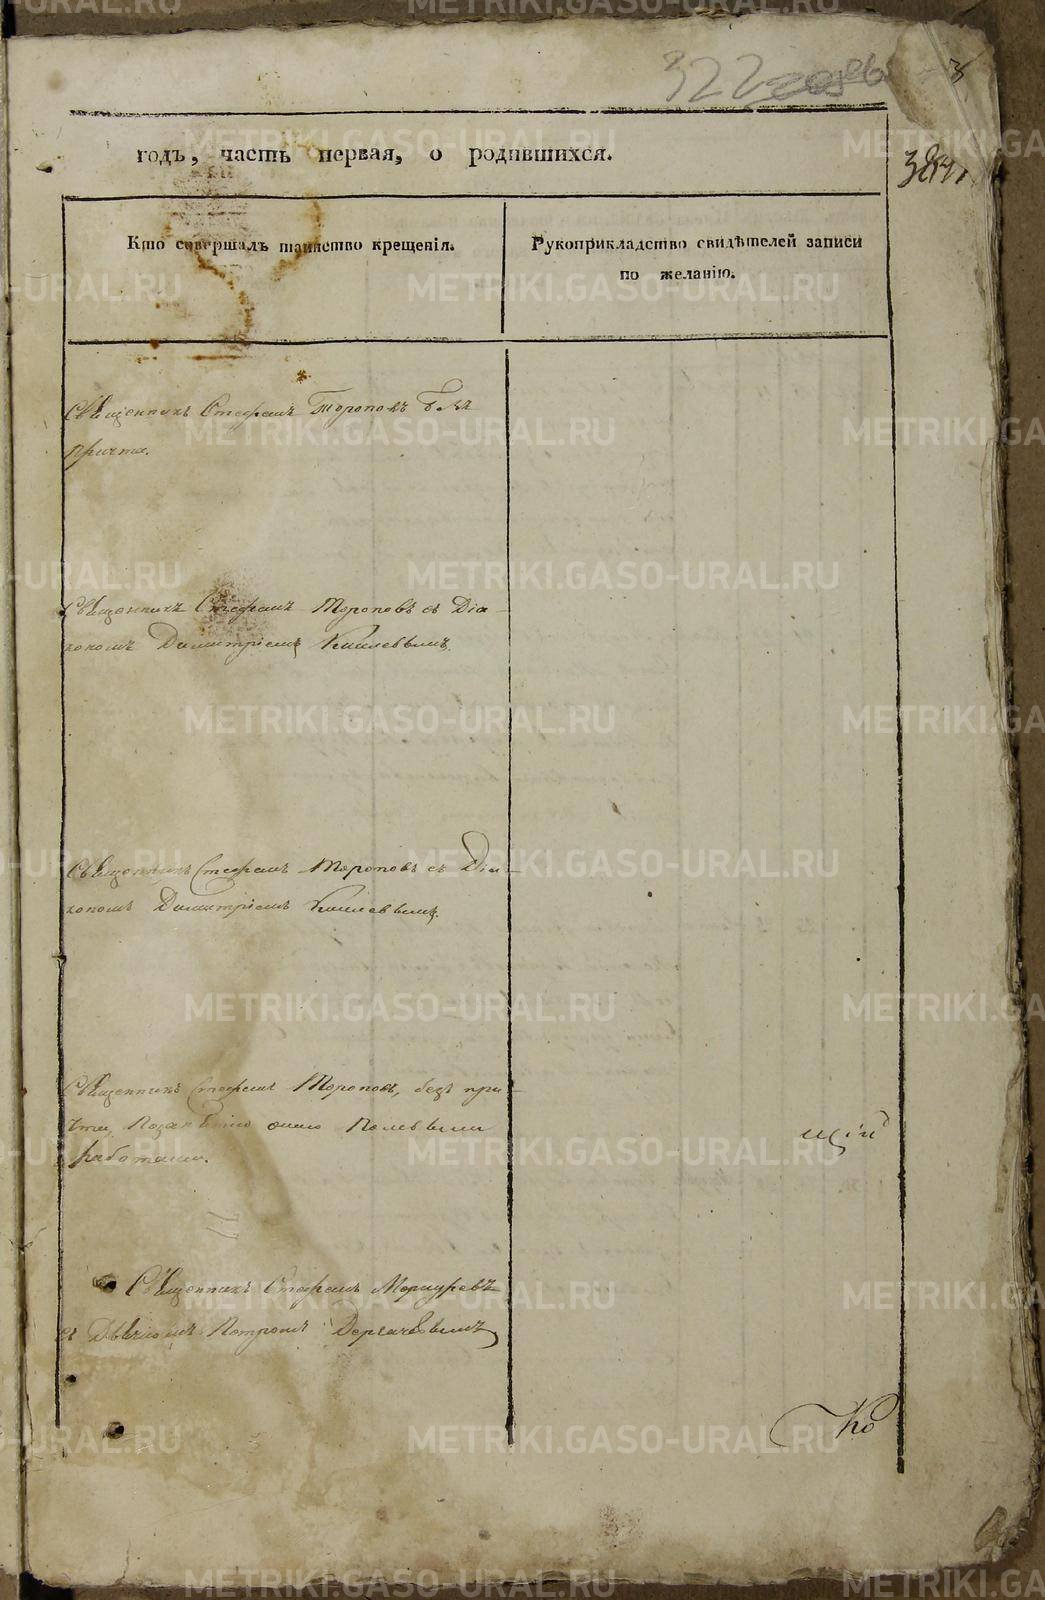 322
годъ, часть первая, о родившихся.
Кто совершалъ таинство крещенія.
Рукоприкладство свидѣтелей записи
по желанію.
Священникъ Стефанъ Тороповъ безъ
причта.
Священникъ Стефанъ Тороповъ съ Діа-
кономъ Димитріемъ
Священникъ Стефанъ Тороповъ съ Діа-
кономъ Димитріемъ
Священникъ Стефанъ Тороповъ, безъ при-
чта,
работами.
щій
Священникъ Стефанъ Меркурьевъ
съ Дьячкомъ Петромъ Дергачевымъ
Ко
METRIKI.GASO-URAL.RU